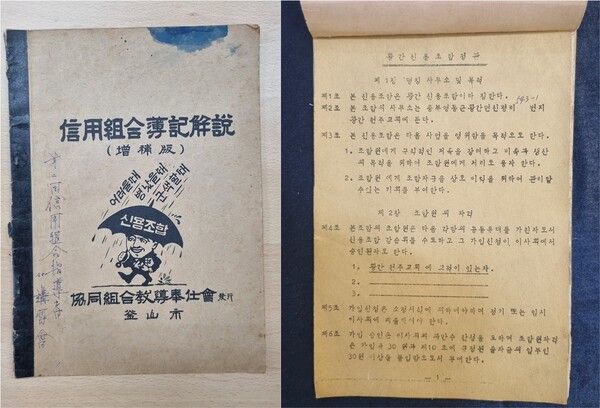 信用組合簿記解說
(增補版)
어려울때
병낫을때
구색할때
신용조합
協同組合敎導奉仕會 發行
釜山市
第二回信用組合指導者
황간신용조합정관
제 1장 명칭 사무소 및 목적
제1조 본 신용조합은 황간 신용조합이라 칭한다.
제2조 본 조합의 사무소는 충북영동군황간면신평리 143-1 번지
황간 천주교회에 둔다.
제3조 본 신용조합은 다음 사업을 영위함을 목적으로 한다.
1. 조합원에게 구칙적인 저축을 장려하고 비축과 생산
의 목적을 위하여 조합원에게 저리로 융자 한다.
2. 조합원 에게 조합자금을 상호 이익을 위하여 관리할
수있는 기회를 부여한다.
제 2장 조합원 의 자격
제4조 본조합의 조합원은 다음 각항의 공동유대를 가진자로서
신용조합 강습회를 수료하고 그 가입신청이 이사회에서
승인된자로 한다.
1, 황간 천주교회 에 그적이 있는자.
2.
3.
제5조 가입신청은 소정서식에 의하여야하며 정기 또는 임시
이사회에 제출하여야 한다.
제6조 가입 승인은 이사회의 과반수 찬성을 요하며 조합원자격
은 가입금 30원과 제10조에 규정된 출자금의 일부인
30원 이상을 불입함으로서 부여한다.
— 1 —